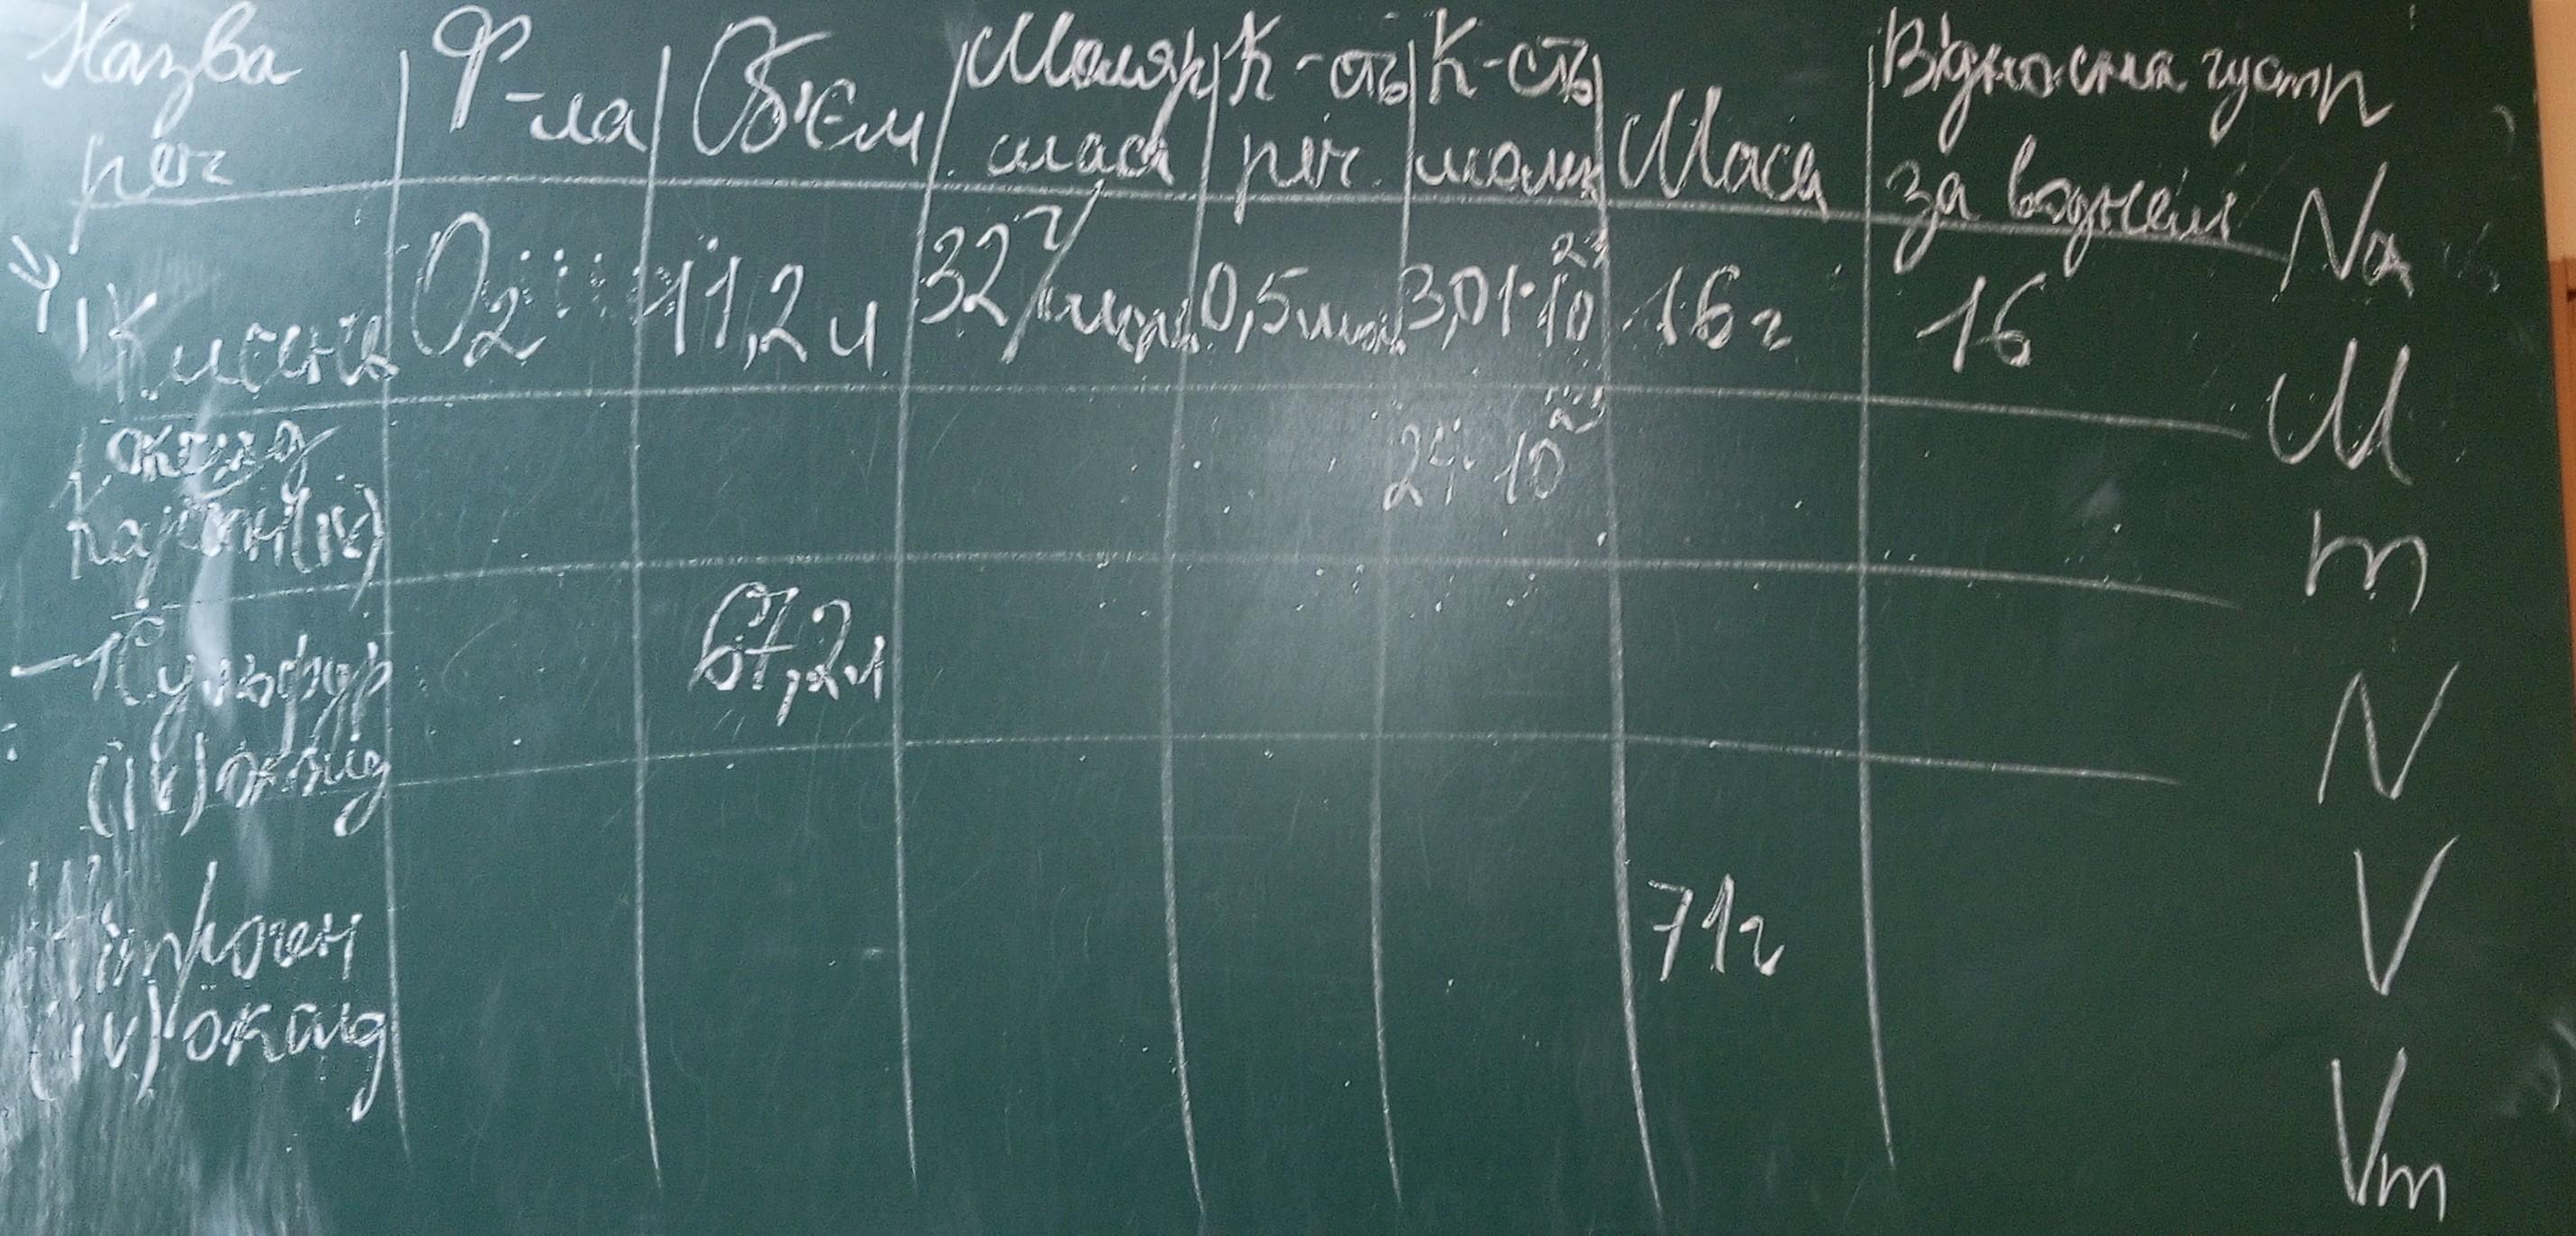 Назва
реч
Ф-ла
Об'єм
Моляр
маса
К-сть
реч.
К-сть
молек
Маса
Відносна густ
за воднем
Кисень O2 11,2 л 32 г/моль 0,5 моль 3,01·10²³ 16 г 16
оксид
Карбон (IV)
24·10²³
Сульфур
(IV) оксид
67,2 л
Нітроген
(IV) оксид
71 г
Na
M
m
N
V
Vm